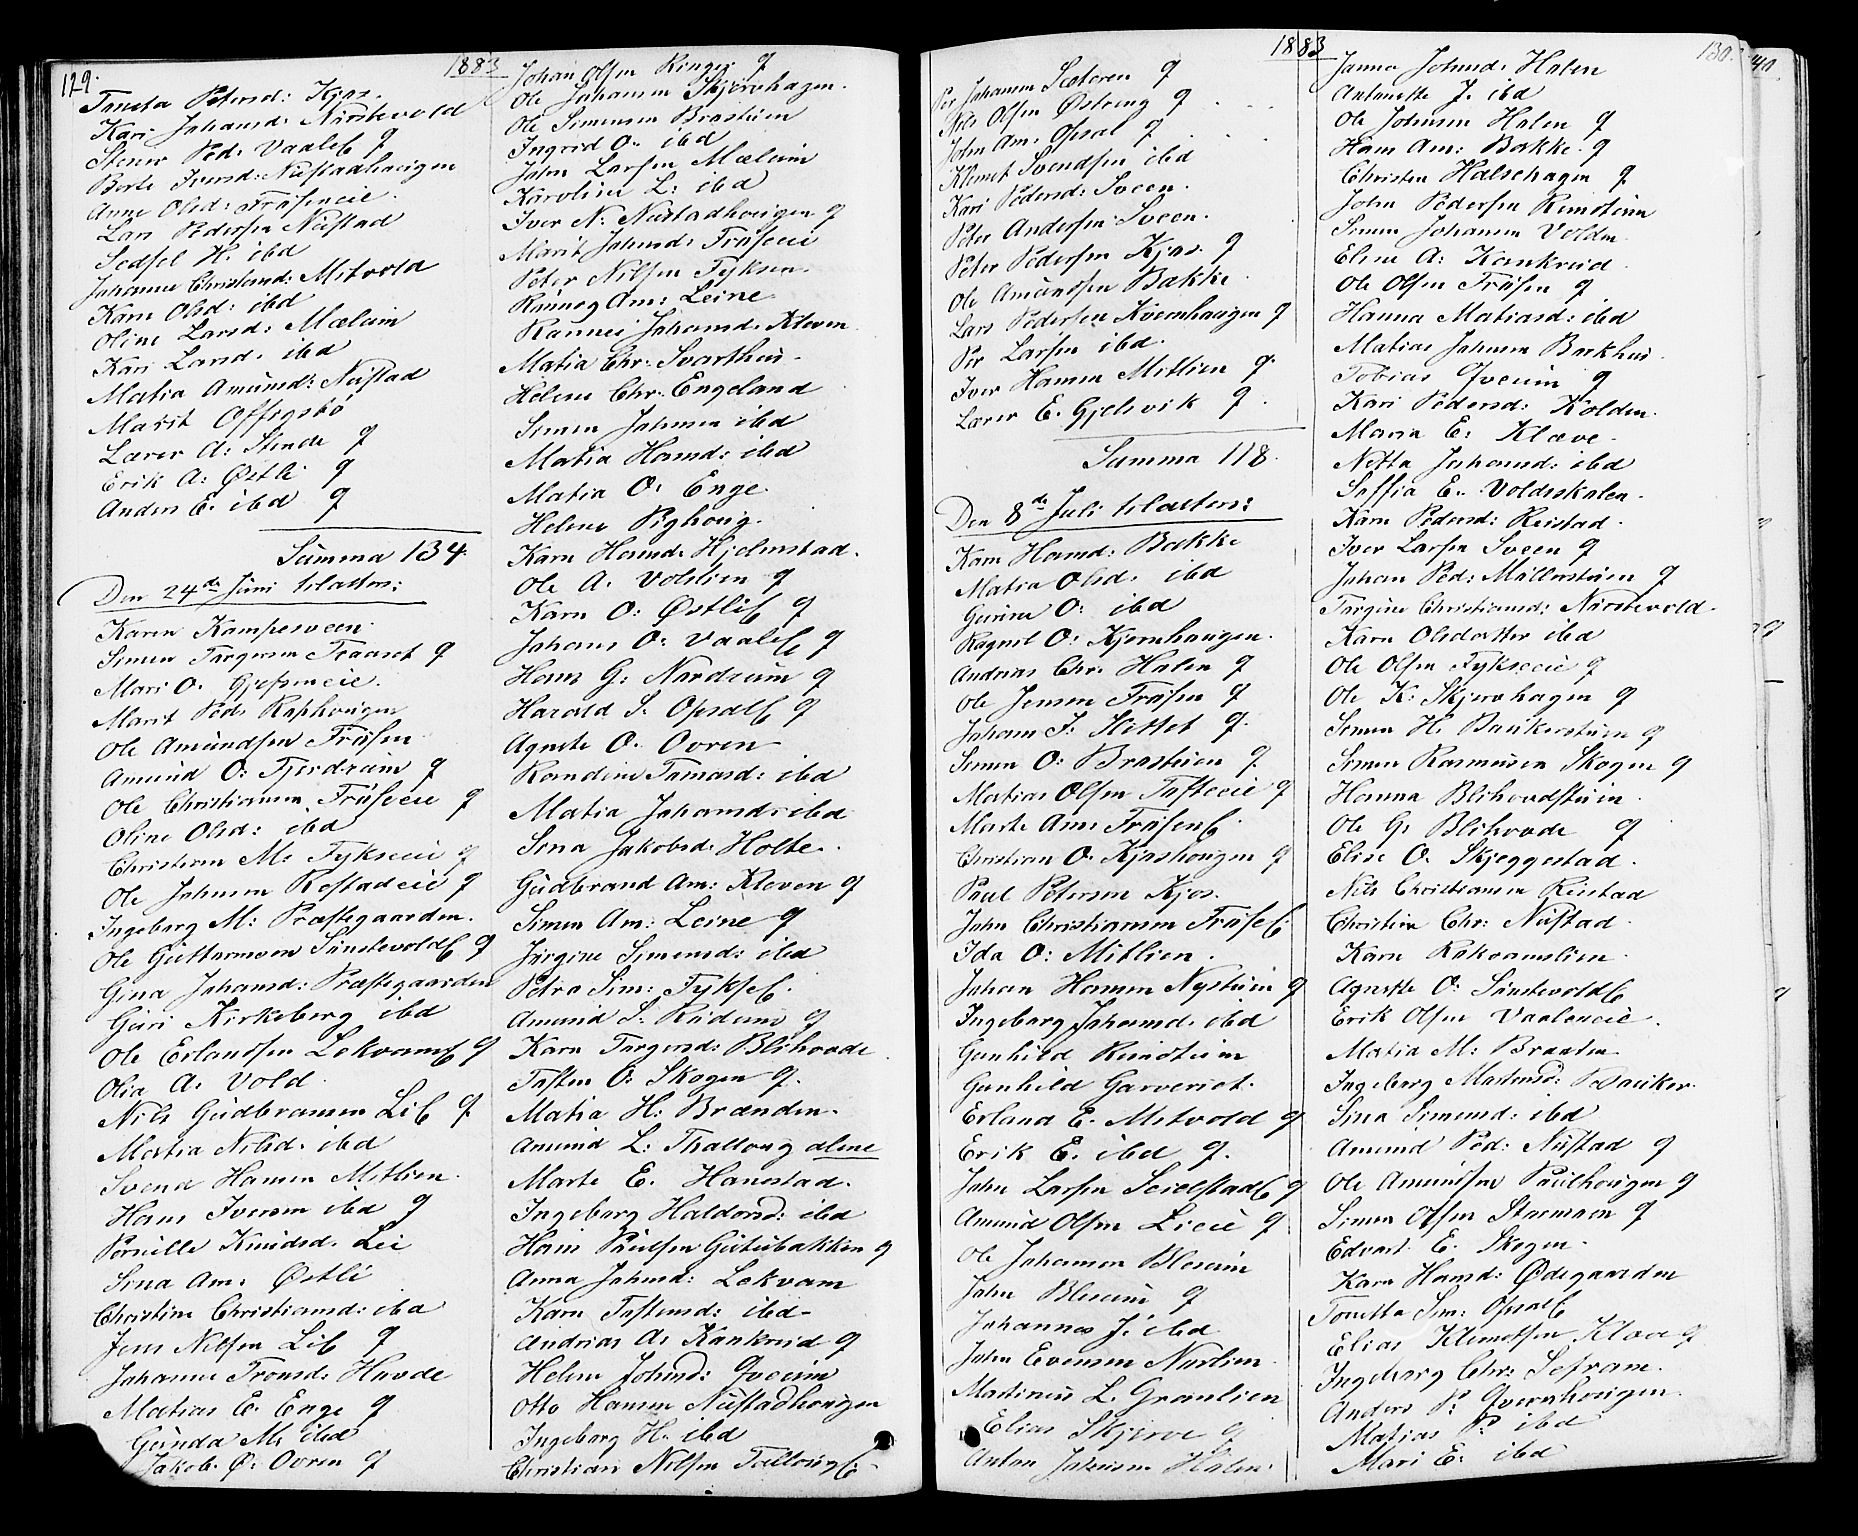 129.
1883
Taneta Petersd: Kjos.
Kari Johansd: Nörstevold
Stener Ped: Vaale q
Berte Iversd: Nustadhougen
Anne Olsd: Fräseneie
Lars Pedersen Nustad
Sedsel H. ibd
Johanne Christensd: Mitvold
Karn Olsd: ibd
Oline Larsd: Mælum
Kari Larsd. ibd
Matia Amunsd: Nustad
Marit Offigsbö
Lærer A: Stende q
Erik A: Østli q
Anders E. ibd q
Summa 134.
Den 24de Juni Claster:
Karen Kampesveen
Simen Targersen Traaset q
Mari O. Gjefseneie.
Marit Ped: Raphougen
Ole Amundsen Fräsen
Amund O: Fjerdrum q
Ole Christiansen Fräseeie q
Oline Olsd: ibd
Christian M: Fykseeie q
Ole Johnsen Rostadeie q
Ingeborg M: Præstegaarden.
Ole Guttormsen Sönstevold q
Gina Johansd: Præstegaarden
Guri Kirkeberg ibd
Ole Erlandsen Lekvam q
Olia A. Vold.
Nils Gudbransen Li q
Matia Nilsd. ibd
Svend Hansen Mitlien.
Hans Iversen ibd q
Pernille Knudsd. Lei
Sina Am: Østli
Christine Christiansd: ibd
Jens Nilsen Li q
Johanne Tronsd: Hovde
Matias E. Enge q
Gunda M: ibd
Jakob Ø: Ovren q
Johan Olsen Ringer q
Ole Johansen Skjervhagen.
Ole Simensen Brastuen
Ingrid O. ibd
John Larsen Mælum
Karoline L: ibd
Iver N: Nustadhougen q
Marit Johnsd: Fräseeie
Peter Nilsen Fyksen.
Rönnog Am: Leine
Rannei Johansd. Kleven
Matia Chr. Svarthus.
Helene Chr. Engeland
Simen Johnsen ibd
Matia Hansd: ibd
Matia O: Enge.
Helene Pighoug.
Karn Hansd: Hjelmstad.
Ole A. Volslien q
Karn O: Østli q
Johans O: Vaale q
Hans G: Nordrum q
Harald S. Opsal q
Agnete O. Ovren
Randine Tomasd: ibd
Matia Johansd: ibd
Sina Jakobsd. Holte.
Gudbrand Am: Kleven q
Simen Am: Leine q
Jörgine Simensd: ibd
Petra Sim: Fykse.
Amund S. Rudum q
Karn Torgersd: Blihovde
Tosten O: Skogen q.
Matia H: Brænden.
Amund L: Thalloug alene
Marte E. Hanestad.
Ingeborg Haldorsd: ibd
Hans Paulsen Gutubakken q
Anna Johnsd: Lekvam
Karn Tostensd: ibd
Andrias A: Kankrud q
Helene Johnsd: Qveum
Otto Hansen Nustadhougen
Ingeborg H. ibd
Christian Nilsen Talloug.
1883
130.
Per Johansen Sæteren q
Nils Olsen Østeng q
John Am. Opsal q
Klemet Svendsen ibd
Kari Pedersd: Sveen.
Peter Andersen Sveen.
Peter Pedersen Kjos. q
Ole Amundsen Bakke.
Lars Pedersen Kvernhougen q
Per Larsen ibd.
Iver Hansen Mitlien q
Lærer E. Gjelsvik q.
Summa 118.
Den 8de Juli Claster:
Karn Hansd: Bakke
Matia Olsd. ibd
Gurine O: ibd
Ragnil O: Kjernhaugen.
Andrias Chr: Halen q
Ole Jensen Fräsen q
Johans J. Hittet q.
Simen O: Brastuen q
Matias Olsen Tofteeie q
Marte Am: Fräsen.
Christian O. Kjoshougen q
Paul Petersen Kjos.
John Christiansen Fräse.
Ida O: Mitlien.
Johan Hansen Nystuen q
Ingeborg Johansd. ibd
Gunhild Rundtuen
Gunhild Garveriet.
Erland E. Mitvold q
Erik E. ibd q.
John Larsen Seielstad q
Amund Olsen Lieie q
Ole Johansen Blesum
John Blesum q
Johannes J. ibd
John Evensen Norlien
Martinus L. Graulien
Elias Skjerve q
Anton Johnsen Halen.
Janna Johnsd. Halen
Antonette J. ibd
Ole Johnsen Halen q
Hans Am: Bakke q
Christen Halsehagen q
John Pedersen Rundtuen
Simen Johansen Volden.
Eline A: Kankrud.
Ole Olsen Fräsen q
Hanna Matiasd: ibd
Matias Johnsen Bækhus.
Tobias Qveum q
Kari Pedersd: Kolden.
Maria E: Klæve.
Netta Johansd: ibd
Soffia E. Voldsskalen.
Karn Pedersd: Reistad.
Iver Larsen Sveen q
Johan Ped: Möllerstuen q
Targine Christiansd: Nörstevold.
Karn Olsdatter ibd
Ole Olsen Fykseeie q
Ole K: Skjervhagen q
Simen H. Baukerstuen q
Simen Rasmusen Skogen q
Hanna Blihovdstuen.
Ole G: Blihovde q
Elise O. Skjeggestad.
Nils Christiansen Reistad
Christine Chr: Nustad.
Karn Rakvamslien.
Agnette O: Sönstevold
Erik Olsen Vaaleneie.
Matia M: Braaten
Ingeborg Martinsd: Bauker.
Sina Simensd: ibd
Amund Ped: Nustad q
Ole Amundsen Paulhougen q
Simen Olsen Starmoen q
Edvart E. Skogen.
Karn Hansd: Ødegaarden
Tonetta Sim: Opsal
Elias Klemetsen Klæve q
Ingeborg Chr: Sefrane.
Anders P: Qvernhougen.
Matias P. ibd
Mari E: ibd